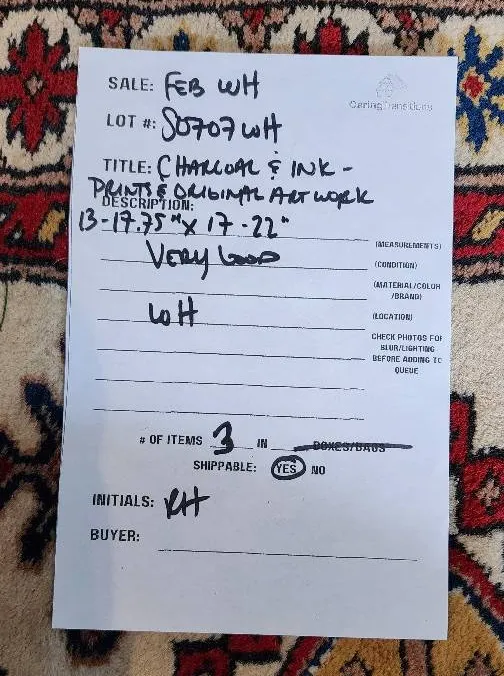 CaringTransitions
SALE: FEB WH
LOT #: S0707WH
TITLE: CHARCOAL & INK -
PRINTS & ORIGINAL ARTWORK
DESCRIPTION:
13-17.75" x 17-22"
(MEASUREMENTS)
VERY GOOD
(CONDITION)
(MATERIAL/COLOR
/BRAND)
WH
(LOCATION)
CHECK PHOTOS FOR
BLUR/LIGHTING
BEFORE ADDING TO
QUEUE
# OF ITEMS 3 IN BOXES/BAGS
SHIPPABLE: YES NO
INITIALS: RH
BUYER: